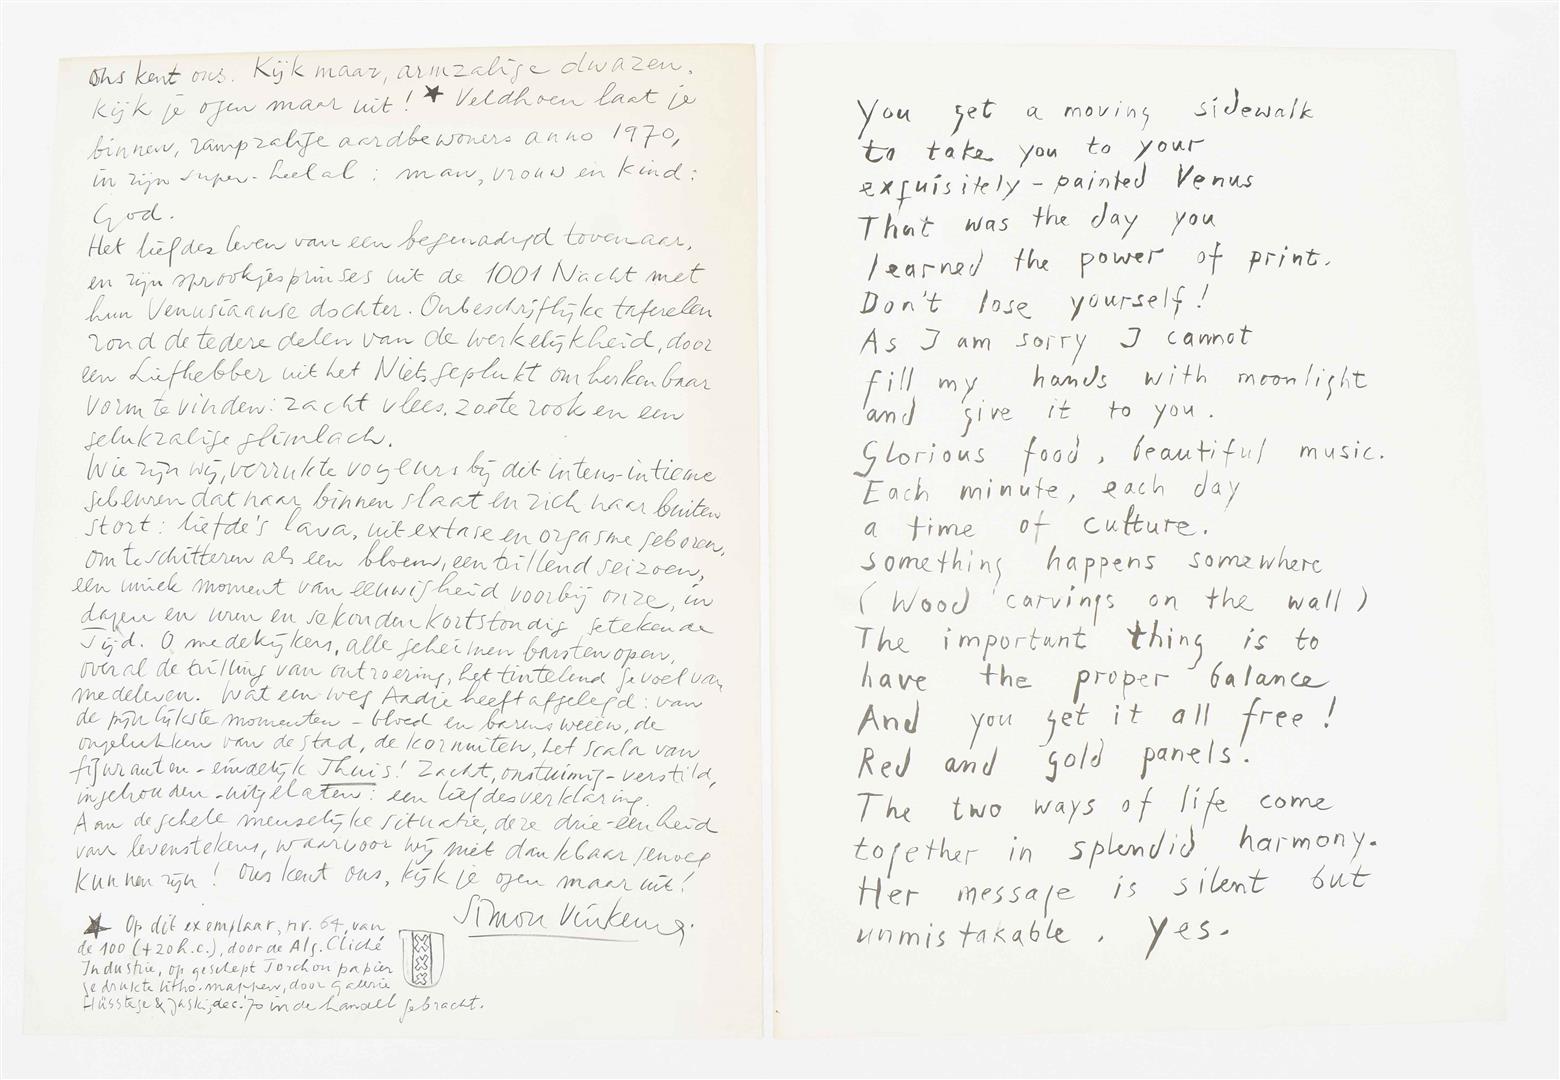 ons kent ons. Kijk maar, armzalige dwazen.
Kijk je ogen maar uit! ★ Veldhoen laat je
binnen, rampzalige aardbewoners anno 1970,
in zijn super-heelal: man, vrouw en kind:
God.
Het liefdesleven van een begenadigd tovenaar,
en zijn sprookjesprinses uit de 1001 Nacht met
hun Venusiaanse dochter. Onbeschrijflijke taferelen
rond de tedere delen van de werkelijkheid, door
een Liefhebber uit het Niets geplukt om herkenbaar
vorm te vinden: zacht vlees, zoete rook en een
gelukzalige glimlach.
Wie zijn wij, verrukte voyeurs bij dit intens-intieme
gebeuren dat naar binnen slaat en zich naar buiten
stort: liefde's lava, uit extase en orgasme geboren,
om te schitteren als een bloem, een trillend seizoen,
een uniek moment van eeuwigheid voorbij onze, in
dagen en uren en sekonden kortstondig getekende
Tijd. O medekijkers, alle geheimen barsten open,
overal de trilling van ontroering, het tintelend gevoel van
medeleven. Wat een weg Aadje heeft afgelegd: van
de pijnlijkste momenten - bloed en barensweeën, de
ongelukken van de stad, de kornuiten, het scala van
figuranten - eindelijk Thuis! Zacht, onstuimig - verstild,
ingehouden - uitgelaten: een liefdesverklaring.
Aan de gehele menselijke situatie, deze drie-eenheid
van levenstekens, waarvoor wij niet dankbaar genoeg
kunnen zijn! Ons kent ons, kijk je ogen maar uit!
Simon Vinkenoog.
★ Op dit exemplaar, nr. 64, van
de 100 (+20 h.c.), door de Alg. Cliché
Industrie, op geschept Torchon papier
gedrukte litho-mappen, door Galerie
Hüsstege & Jaski, dec. '70 in de handel gebracht.
You get a moving sidewalk
to take you to your
exquisitely - painted Venus
That was the day you
learned the power of print.
Don't lose yourself!
As I am sorry I cannot
fill my hands with moonlight
and give it to you.
Glorious food, beautiful music.
Each minute, each day
a time of culture.
something happens somewhere
(Wood carvings on the wall)
The important thing is to
have the proper balance
And you get it all free!
Red and gold panels.
The two ways of life come
together in splendid harmony.
Her message is silent but
unmistakable. Yes.